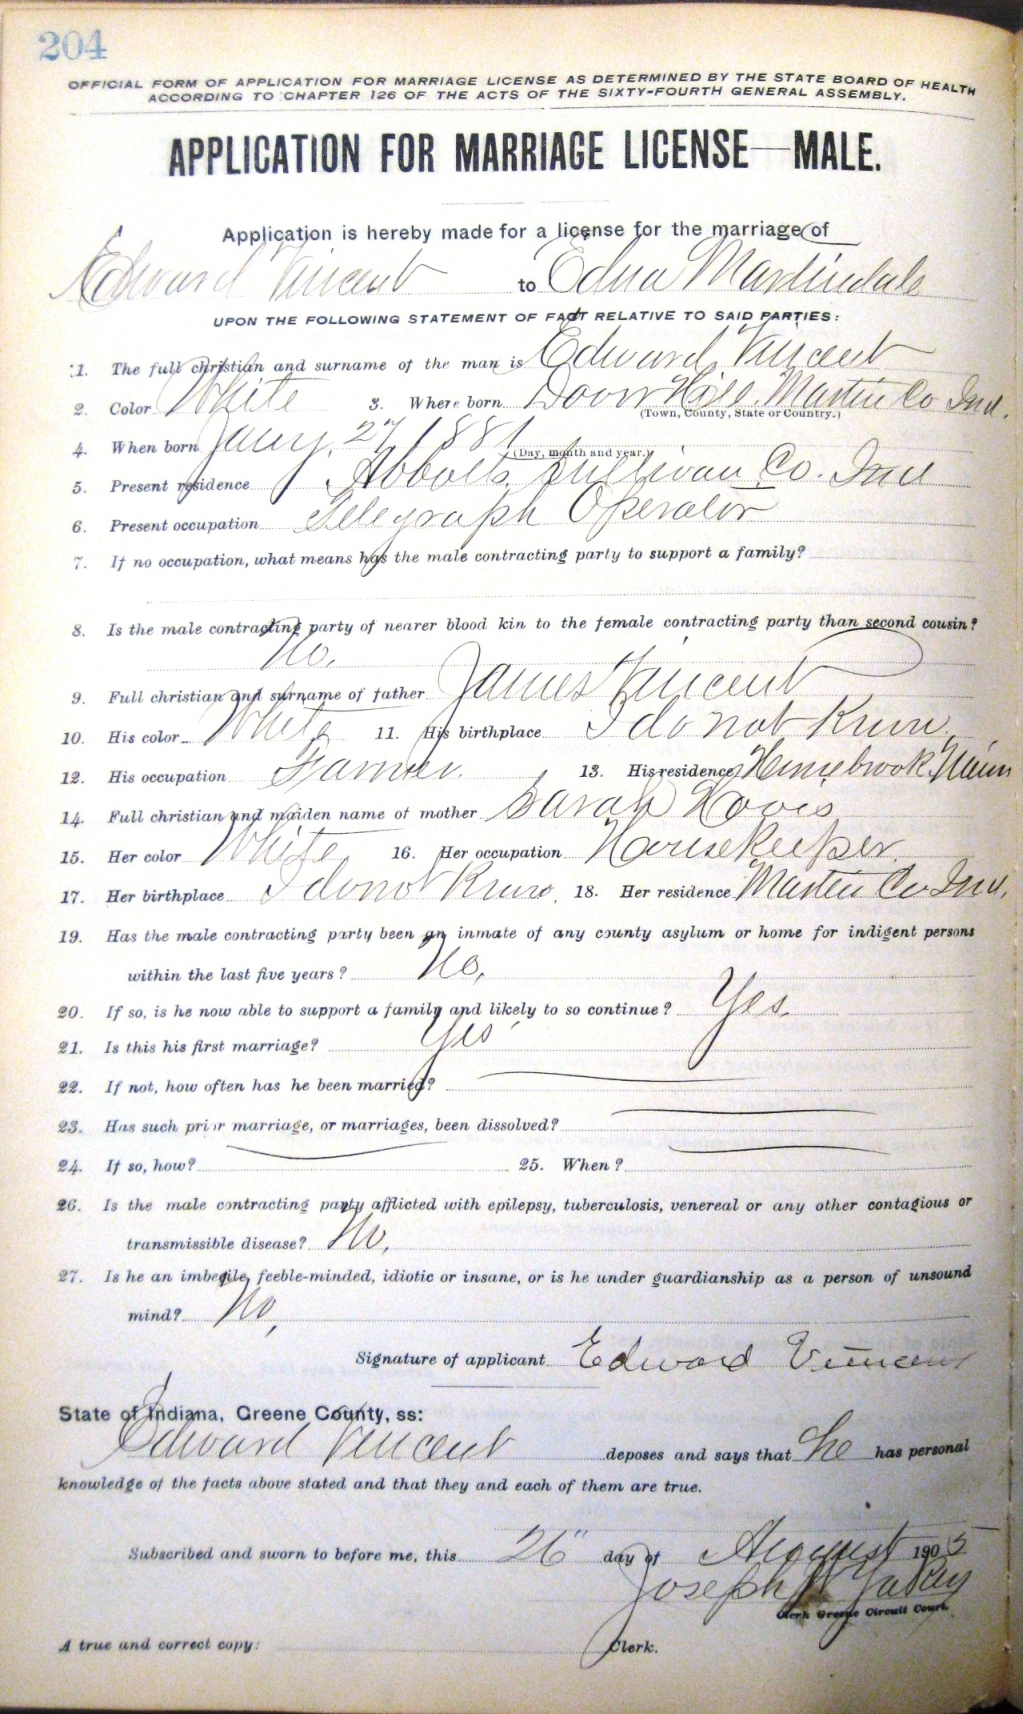 204
OFFICIAL FORM OF APPLICATION FOR MARRIAGE LICENSE AS DETERMINED BY THE STATE BOARD OF HEALTH
ACCORDING TO CHAPTER 126 OF THE ACTS OF THE SIXTY-FOURTH GENERAL ASSEMBLY.
APPLICATION FOR MARRIAGE LICENSE—MALE.
Application is hereby made for a license for the marriage of
Edward Vincent to Edna Martindale
UPON THE FOLLOWING STATEMENT OF FACT RELATIVE TO SAID PARTIES:
1. The full christian and surname of the man is Edward Vincent
2. Color White 3. Where born Dover Hill Martin Co Ind.
(Town, County, State or Country.)
4. When born Jany. 27 1881
(Day, month and year.)
5. Present residence Abbotts, Sullivan Co. Ind
6. Present occupation Telegraph Operator
7. If no occupation, what means has the male contracting party to support a family?
8. Is the male contracting party of nearer blood kin to the female contracting party than second cousin?
No.
9. Full christian and surname of father James Vincent
10. His color White 11. His birthplace I do not Know
12. His occupation Farmer. 13. His residence Minn
14. Full christian and maiden name of mother Sarah Hovis
15. Her color White 16. Her occupation Housekeeper
17. Her birthplace I do not Know. 18. Her residence Martin Co Ind.
19. Has the male contracting party been an inmate of any county asylum or home for indigent persons
within the last five years? No,
20. If so, is he now able to support a family and likely to so continue? Yes.
21. Is this his first marriage? Yes
22. If not, how often has he been married?
23. Has such prior marriage, or marriages, been dissolved?
24. If so, how? 25. When?
26. Is the male contracting party afflicted with epilepsy, tuberculosis, venereal or any other contagious or
transmissible disease? No,
27. Is he an imbecile, feeble-minded, idiotic or insane, or is he under guardianship as a person of unsound
mind? No,
Signature of applicant Edward Vincent
State of Indiana, Greene County, ss:
Edward Vincent deposes and says that he has personal
knowledge of the facts above stated and that they and each of them are true.
Subscribed and sworn to before me, this 26" day of August 1905
Joseph W
Clerk Greene Circuit Court.
A true and correct copy: Clerk.